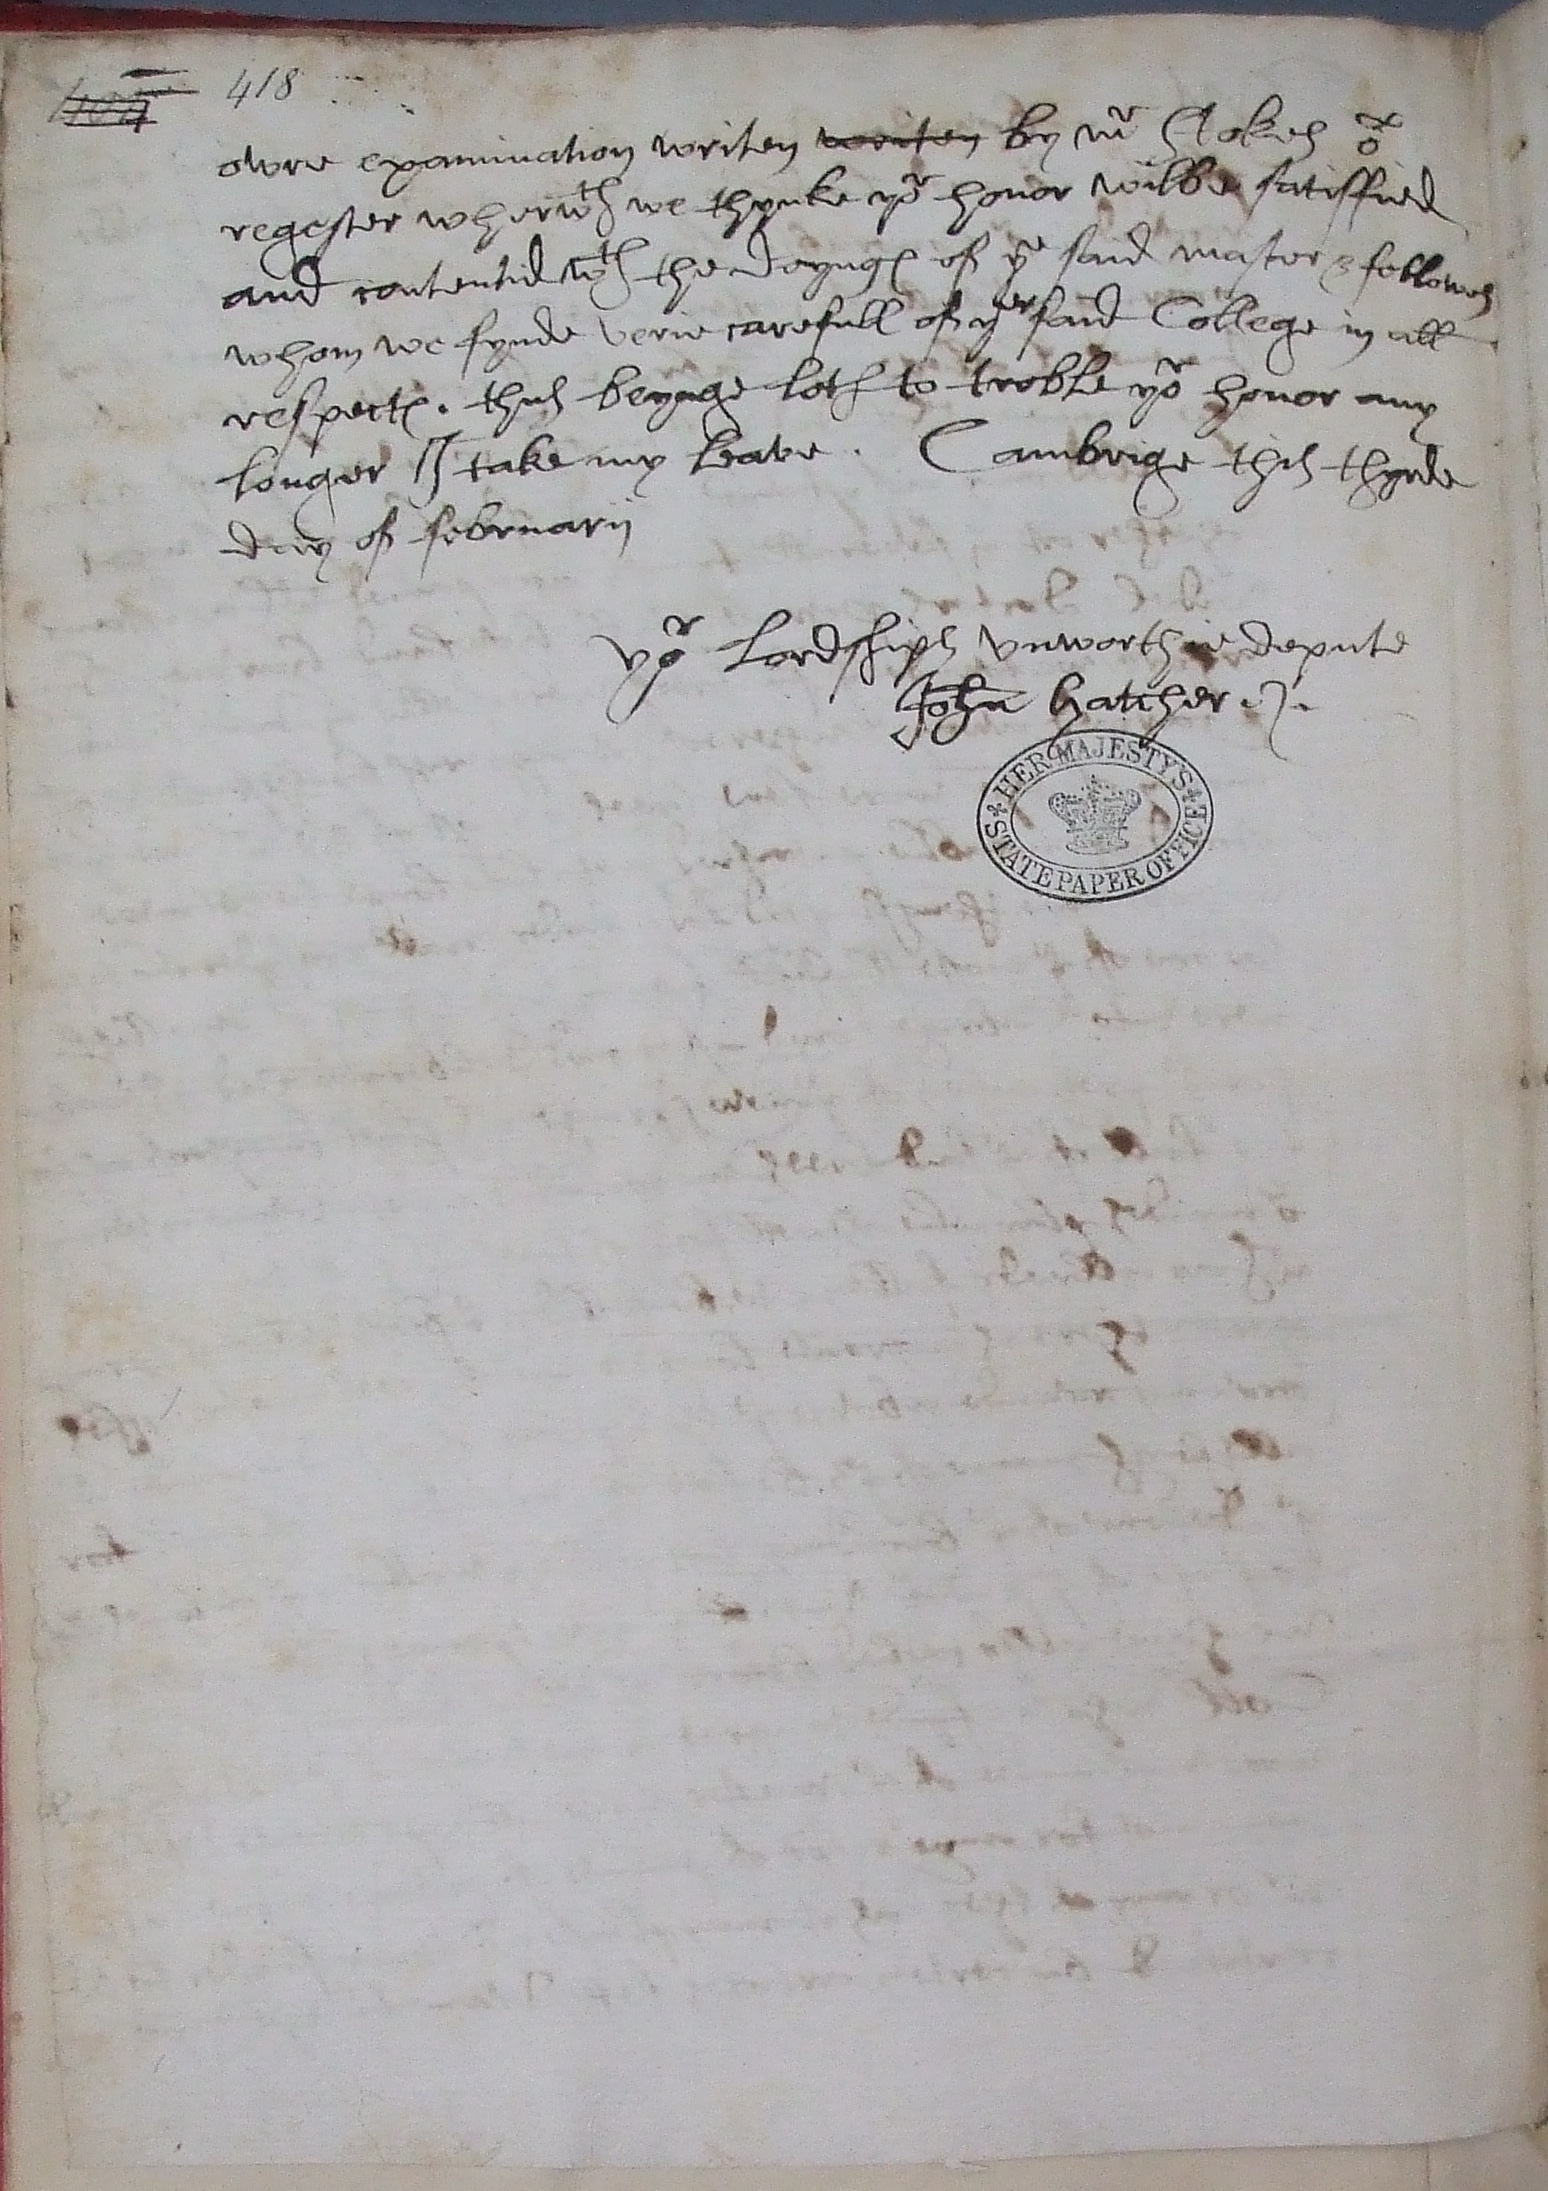 418
owre examination writen writen by mr Stokes or
regester wherwth we thynke yor honor wilbe satisffied
and contentid wth the doynges of ye said master & fellowes
whom we fynde verie carefull of yer said College in all
respectes. this beynge loth to troble yor honor any
longer I take my leave. Cambrige this thyrde
day of februarij
yor Lordships unworthie depute
John hatcher.
HER MAJESTY'S STATE PAPER OFFICE